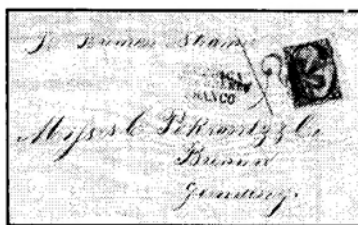 Bremen
FRANCO
Messrs C Pokrantz & Co
Bremen
Germany.